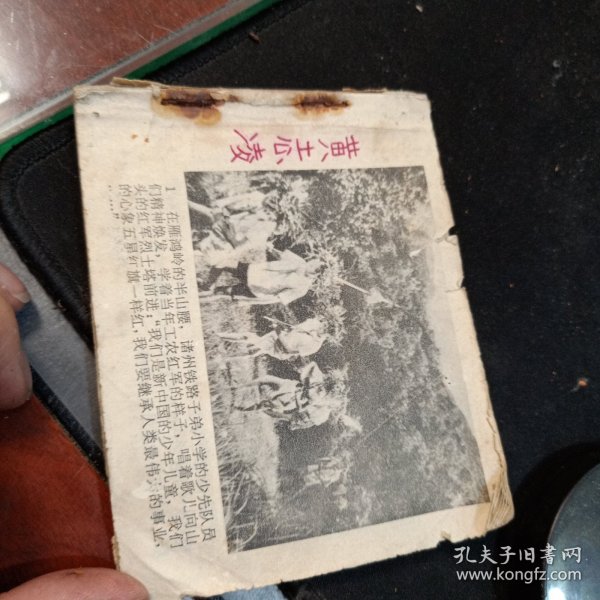 1 在雁鸿岭的半山腰，诸州铁路子弟小学的少先队员
们精神焕发，学着当年工农红军的样子，唱着歌儿向山
头的红军烈士塔前进：“我们是新中国的少年儿童，我们
的心象五星红旗一样红，我们要继承人类最伟大的事业，
……”
孔夫子旧书网
www.kongfz.com